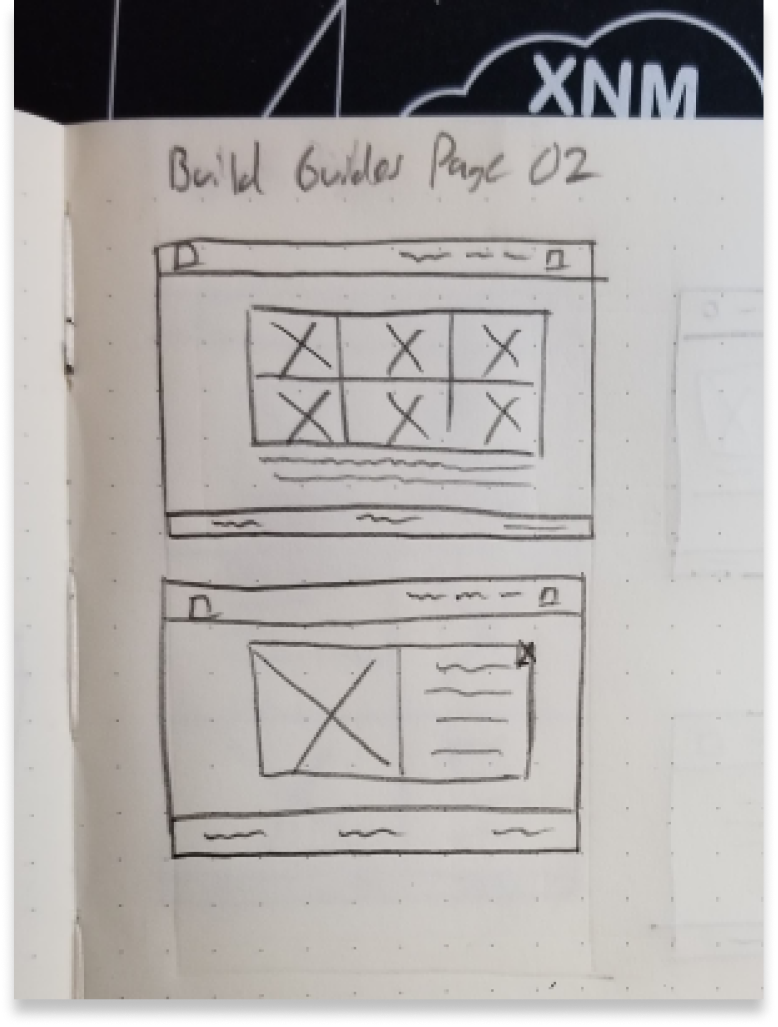 XNM
Build Guides Page 02